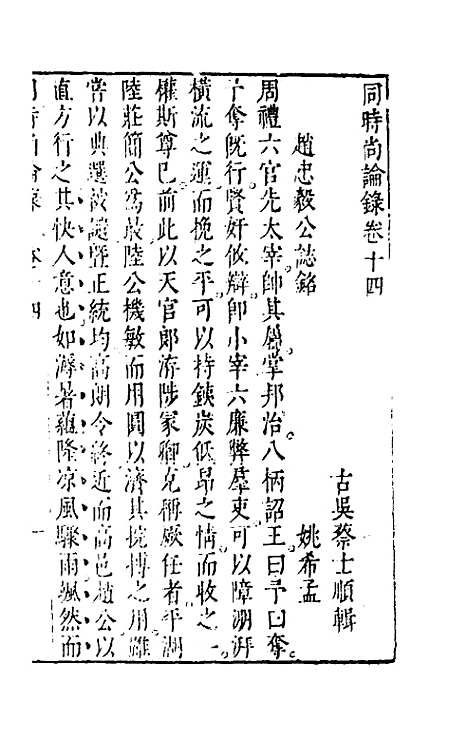 同時尚論錄卷十四
古吳蔡士順輯
趙忠毅公誌銘
姚希孟
周禮六官先太宰帥其屬掌邦治八柄詔王曰予曰奪
予奪旣行賢奸攸辯卽小宰六廉弊羣吏可以障淜湃
橫流之運而挽之平可以持鐵炭低昂之情而收之一
權斯尊已前此以天官郎游陟家卿克稱厥任者平湖
陸莊簡公爲最陸公機敏而用圓以濟其挽搏之用雖
嘗以典選被譴暨正統均高朗令終近而高邑趙公以
直方行之其快人意也如溽暑蘊隆凉風驟雨颯然而